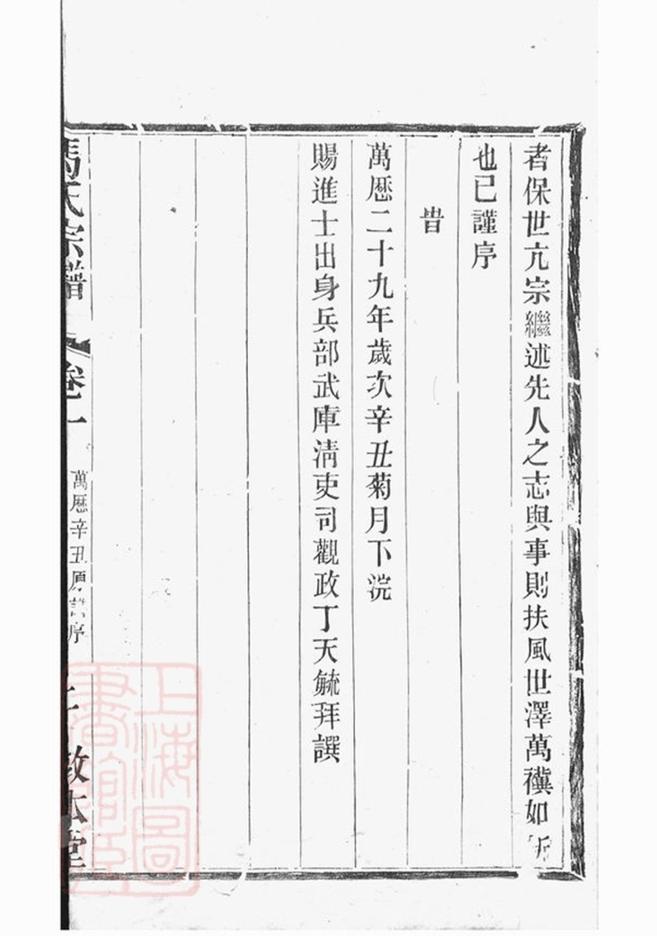 者保世亢宗繼述先人之志與事則扶風世澤萬䙫如
也已謹序
旹
萬曆二十九年歲次辛丑菊月下浣
賜進士出身兵部武庫清吏司觀政丁天毓拜譔
馬氏宗譜
卷一
萬曆辛丑原譜序
敦本堂
上海圖書館藏